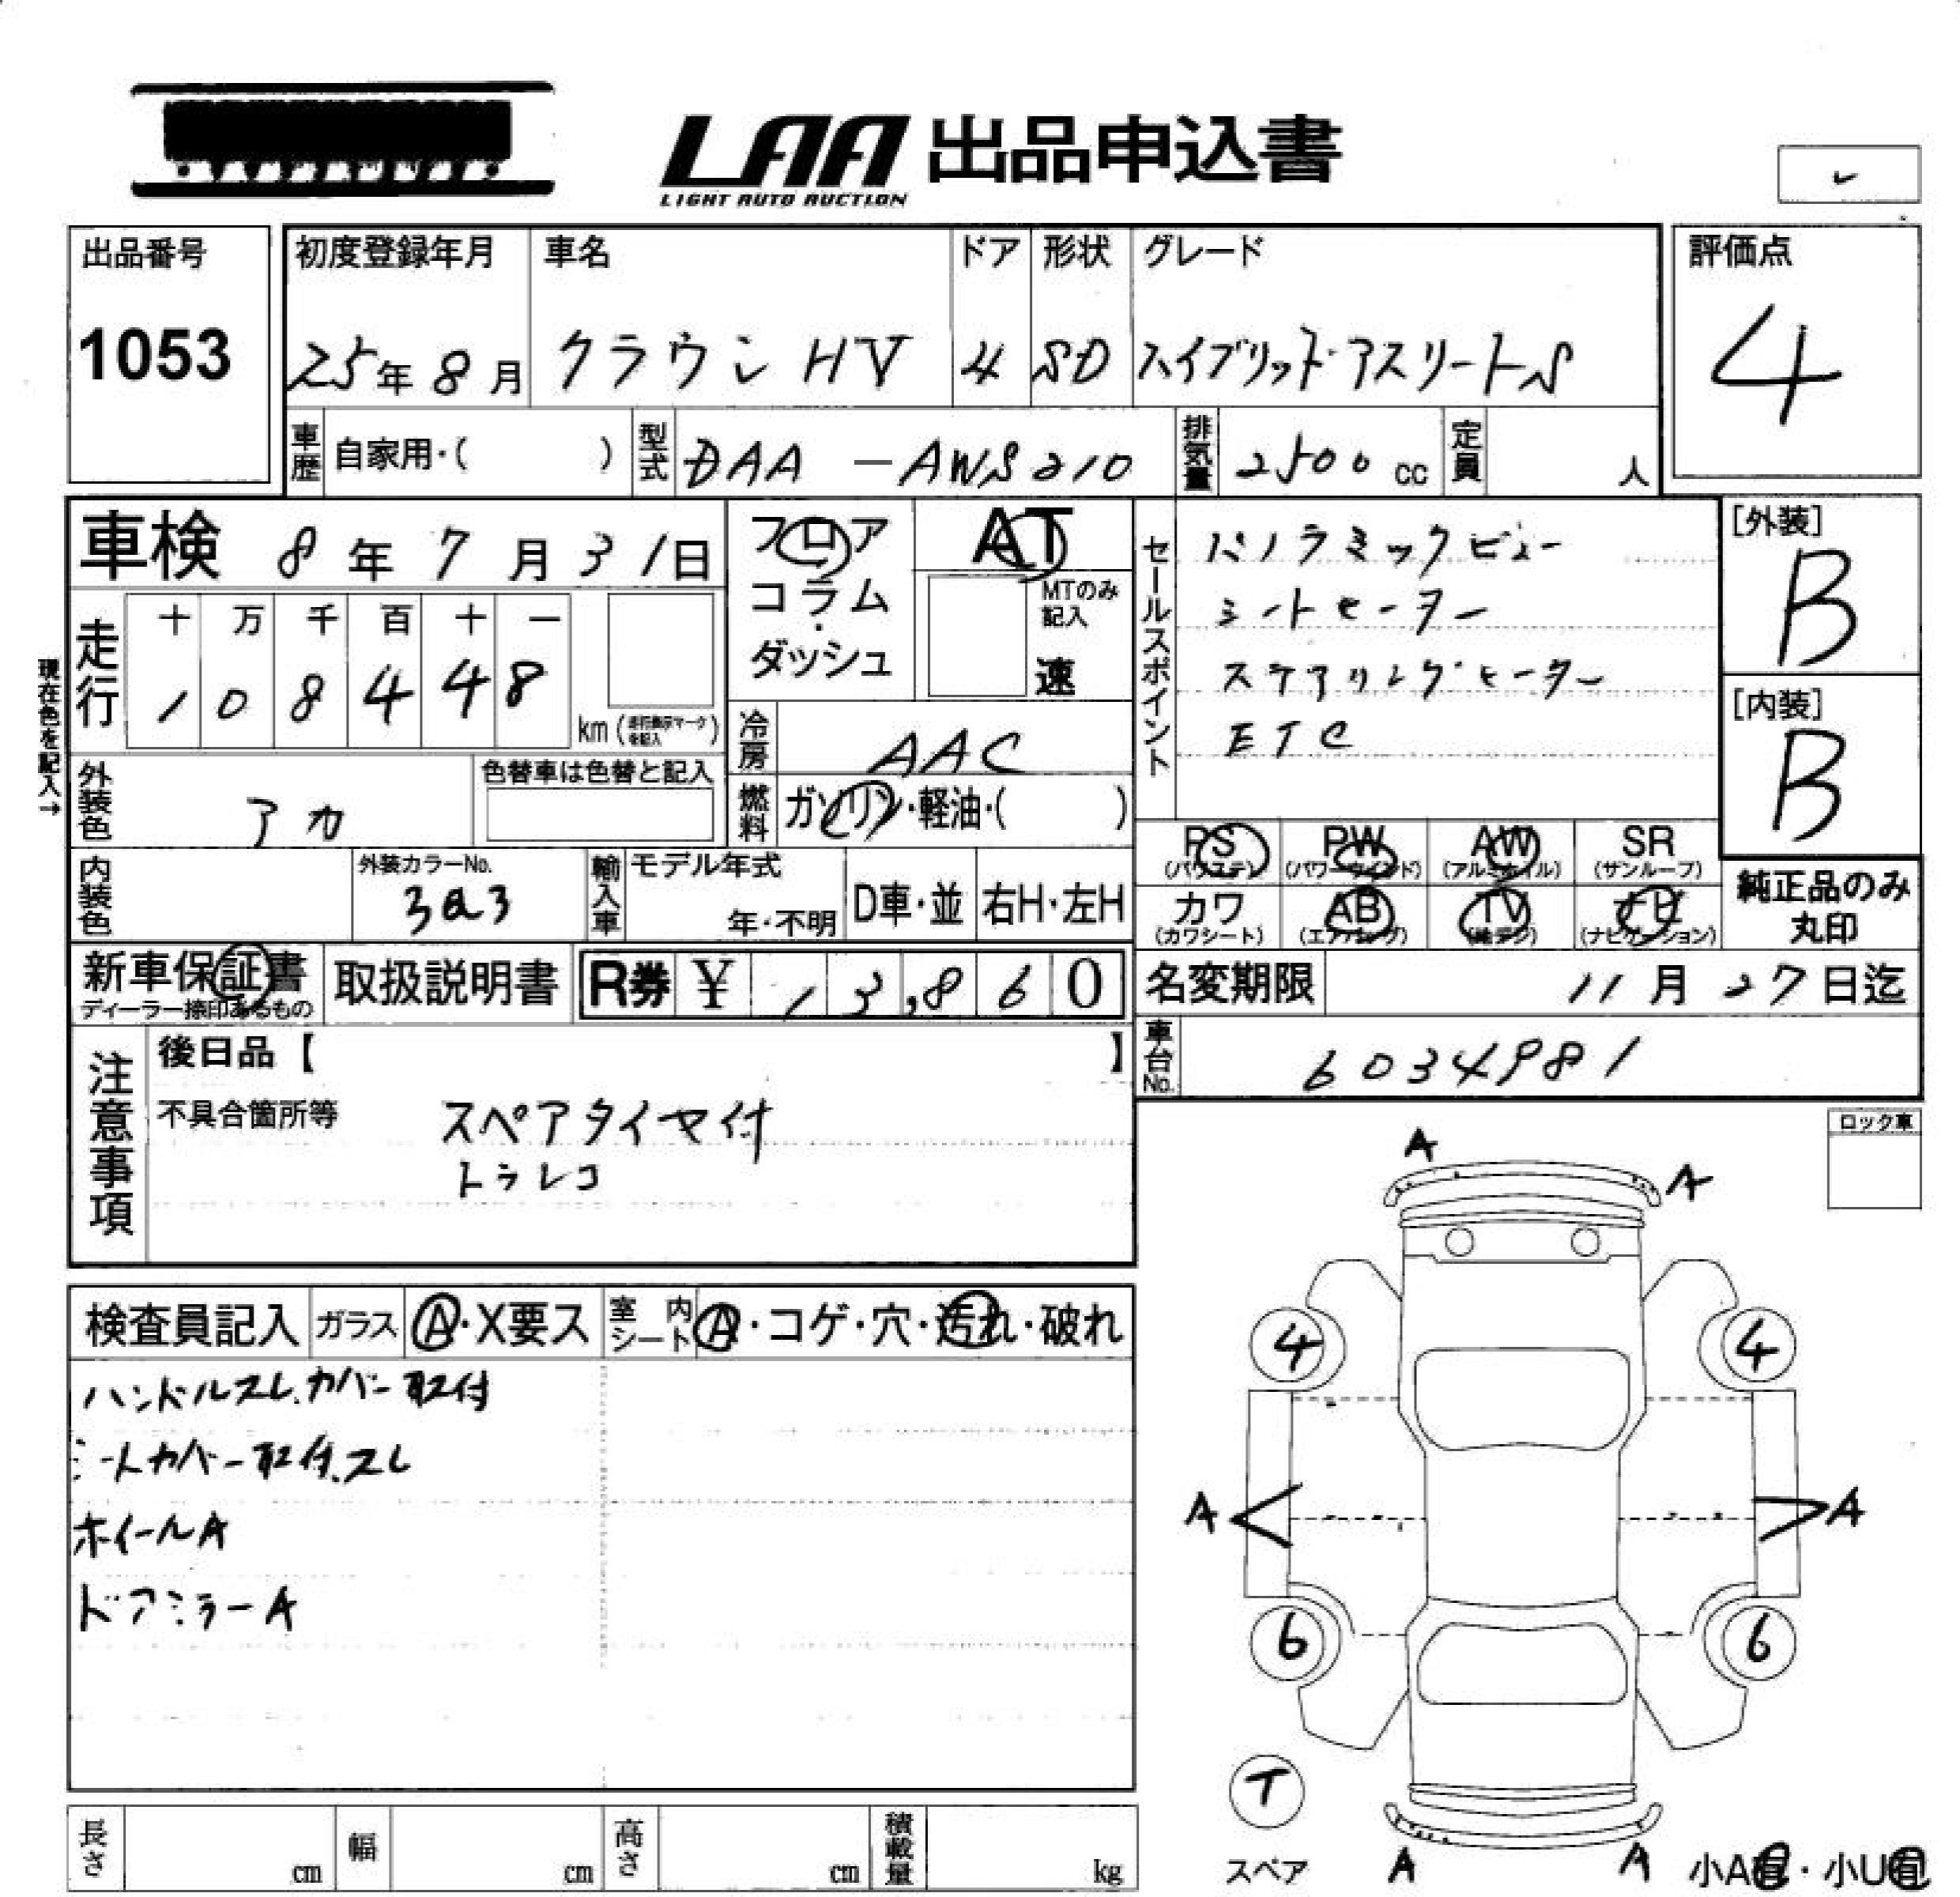 LAA 出品申込書
LIGHT AUTO AUCTION
出品番号
1053
初度登録年月 車名 ドア 形状 グレード
25年8月 クラウンHV 4 SD ハイブリッドアスリートS
評価点
4
車歴 自家用・( ) 型式 DAA-AWS210 排気量 2500cc 定員 人
車検 8年7月31日
フロア
コラム・
ダッシュ
AT
MTのみ
記入
速
走行 十 万 千 百 十 一
1 0 8 4 4 8 km
現在色を記入→
冷房 AAC
外装色 アカ 色替車は色替と記入
燃料 ガソリン・軽油・( )
セールスポイント
パノラミックビュー
シートヒーター
ステアリングヒーター
ETC
[外装]
B
[内装]
B
PS (パワステ) PW (パワーウインド) AW (アルミホイル) SR (サンルーフ)
カワ (カワシート) AB (エアバッグ) TV (地デジ) ナビ (ナビゲーション)
純正品のみ
丸印
内装色 外装カラーNo. 3Q3 輸入車 モデル年式 年・不明 D車・並 右H・左H
新車保証書 取扱説明書 R券 ¥ 13,860
ディーラー捺印あるもの
名変期限 11月27日迄
車台No. 6034981
注意事項
後日品【 】
不具合箇所等 スペアタイヤ付
ドラレコ
ロック車
検査員記入 ガラス A・X要ス 室内シート A・コゲ・穴・汚れ・破れ
ハンドルスレ、カバー取付
シートカバー取付、スレ
ホイールA
ドアミラーA
A
A
4 4
A A
6 6
T
スペア
A A
小A有・小U有
長さ cm 幅 cm 高さ cm 積載量 kg